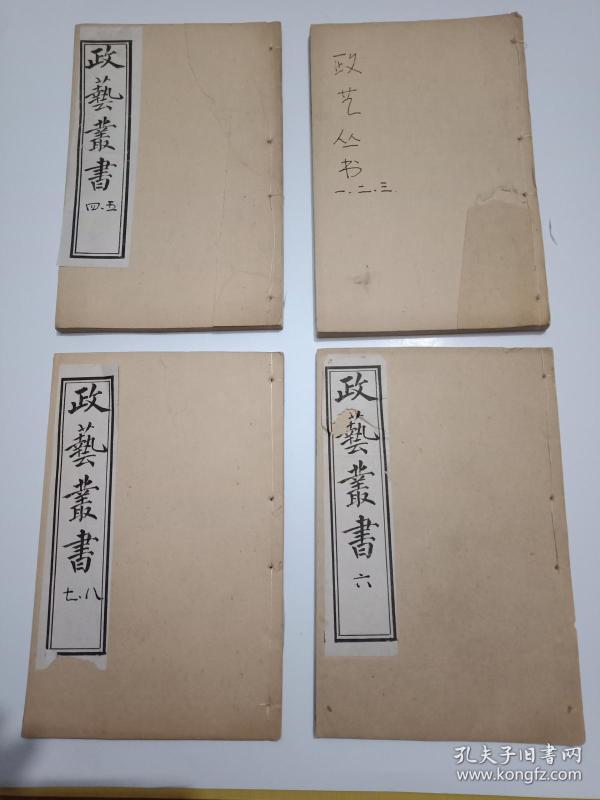 政藝叢書
四.五
政艺丛书
一.二.三.
政藝叢書
七.八
政藝叢書
六
孔夫子旧书网
www.kongfz.com